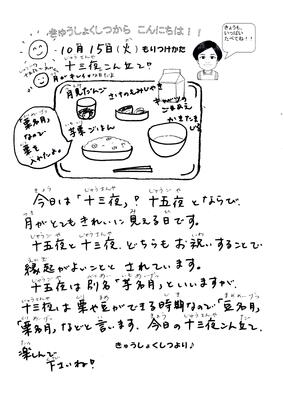 きゅうしょくしつから こんにちは!!
きょうも、
いっぱい
たべてね!!
10月15日(火) もりつけかた
十三夜こんだて
月見だんご
さけのもみじやき
キャベツの
ごまあえ
かきたま
栗ごはん
"栗名月"
なので
栗を
入れたよ。
今日は「十三夜」。十五夜とならび、
月がとてもきれいに見える日です。
十五夜と十三夜、どちらもお祝いすることで
縁起がよいこととされています。
十五夜は別名「芋名月」といいますが、
十三夜は栗や豆ができる時期なので「豆名月」
「栗名月」などと言います。今日の十三夜こん立て、
楽しんで
下さいね!
きゅうしょくしつより♪